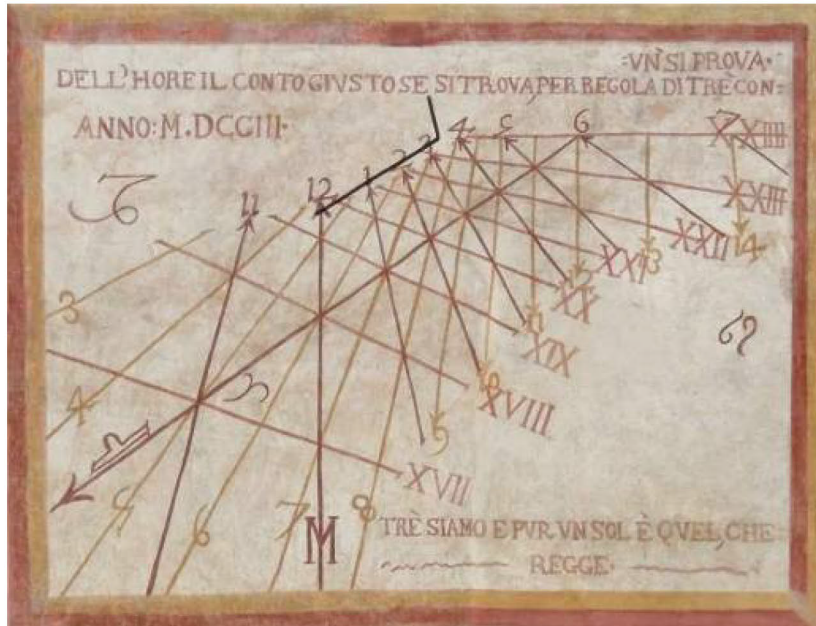 :VN' SI PROVA·
DELL'HORE IL CONTO GIVSTO SE SI TROVA, PER REGOLA DI TRÈ CON:
ANNO: M. DCCIII·
11 12 1 2 3 4 5 6 7 XXIIII
XXIII
XXII 14
XXI 13
XX 12
3 XIX 11
XVIII 10
4 9
XVII
5 6 7 M 8
TRÈ SIAMO E PVR VN SOL È QVEL, CHE
REGGE·